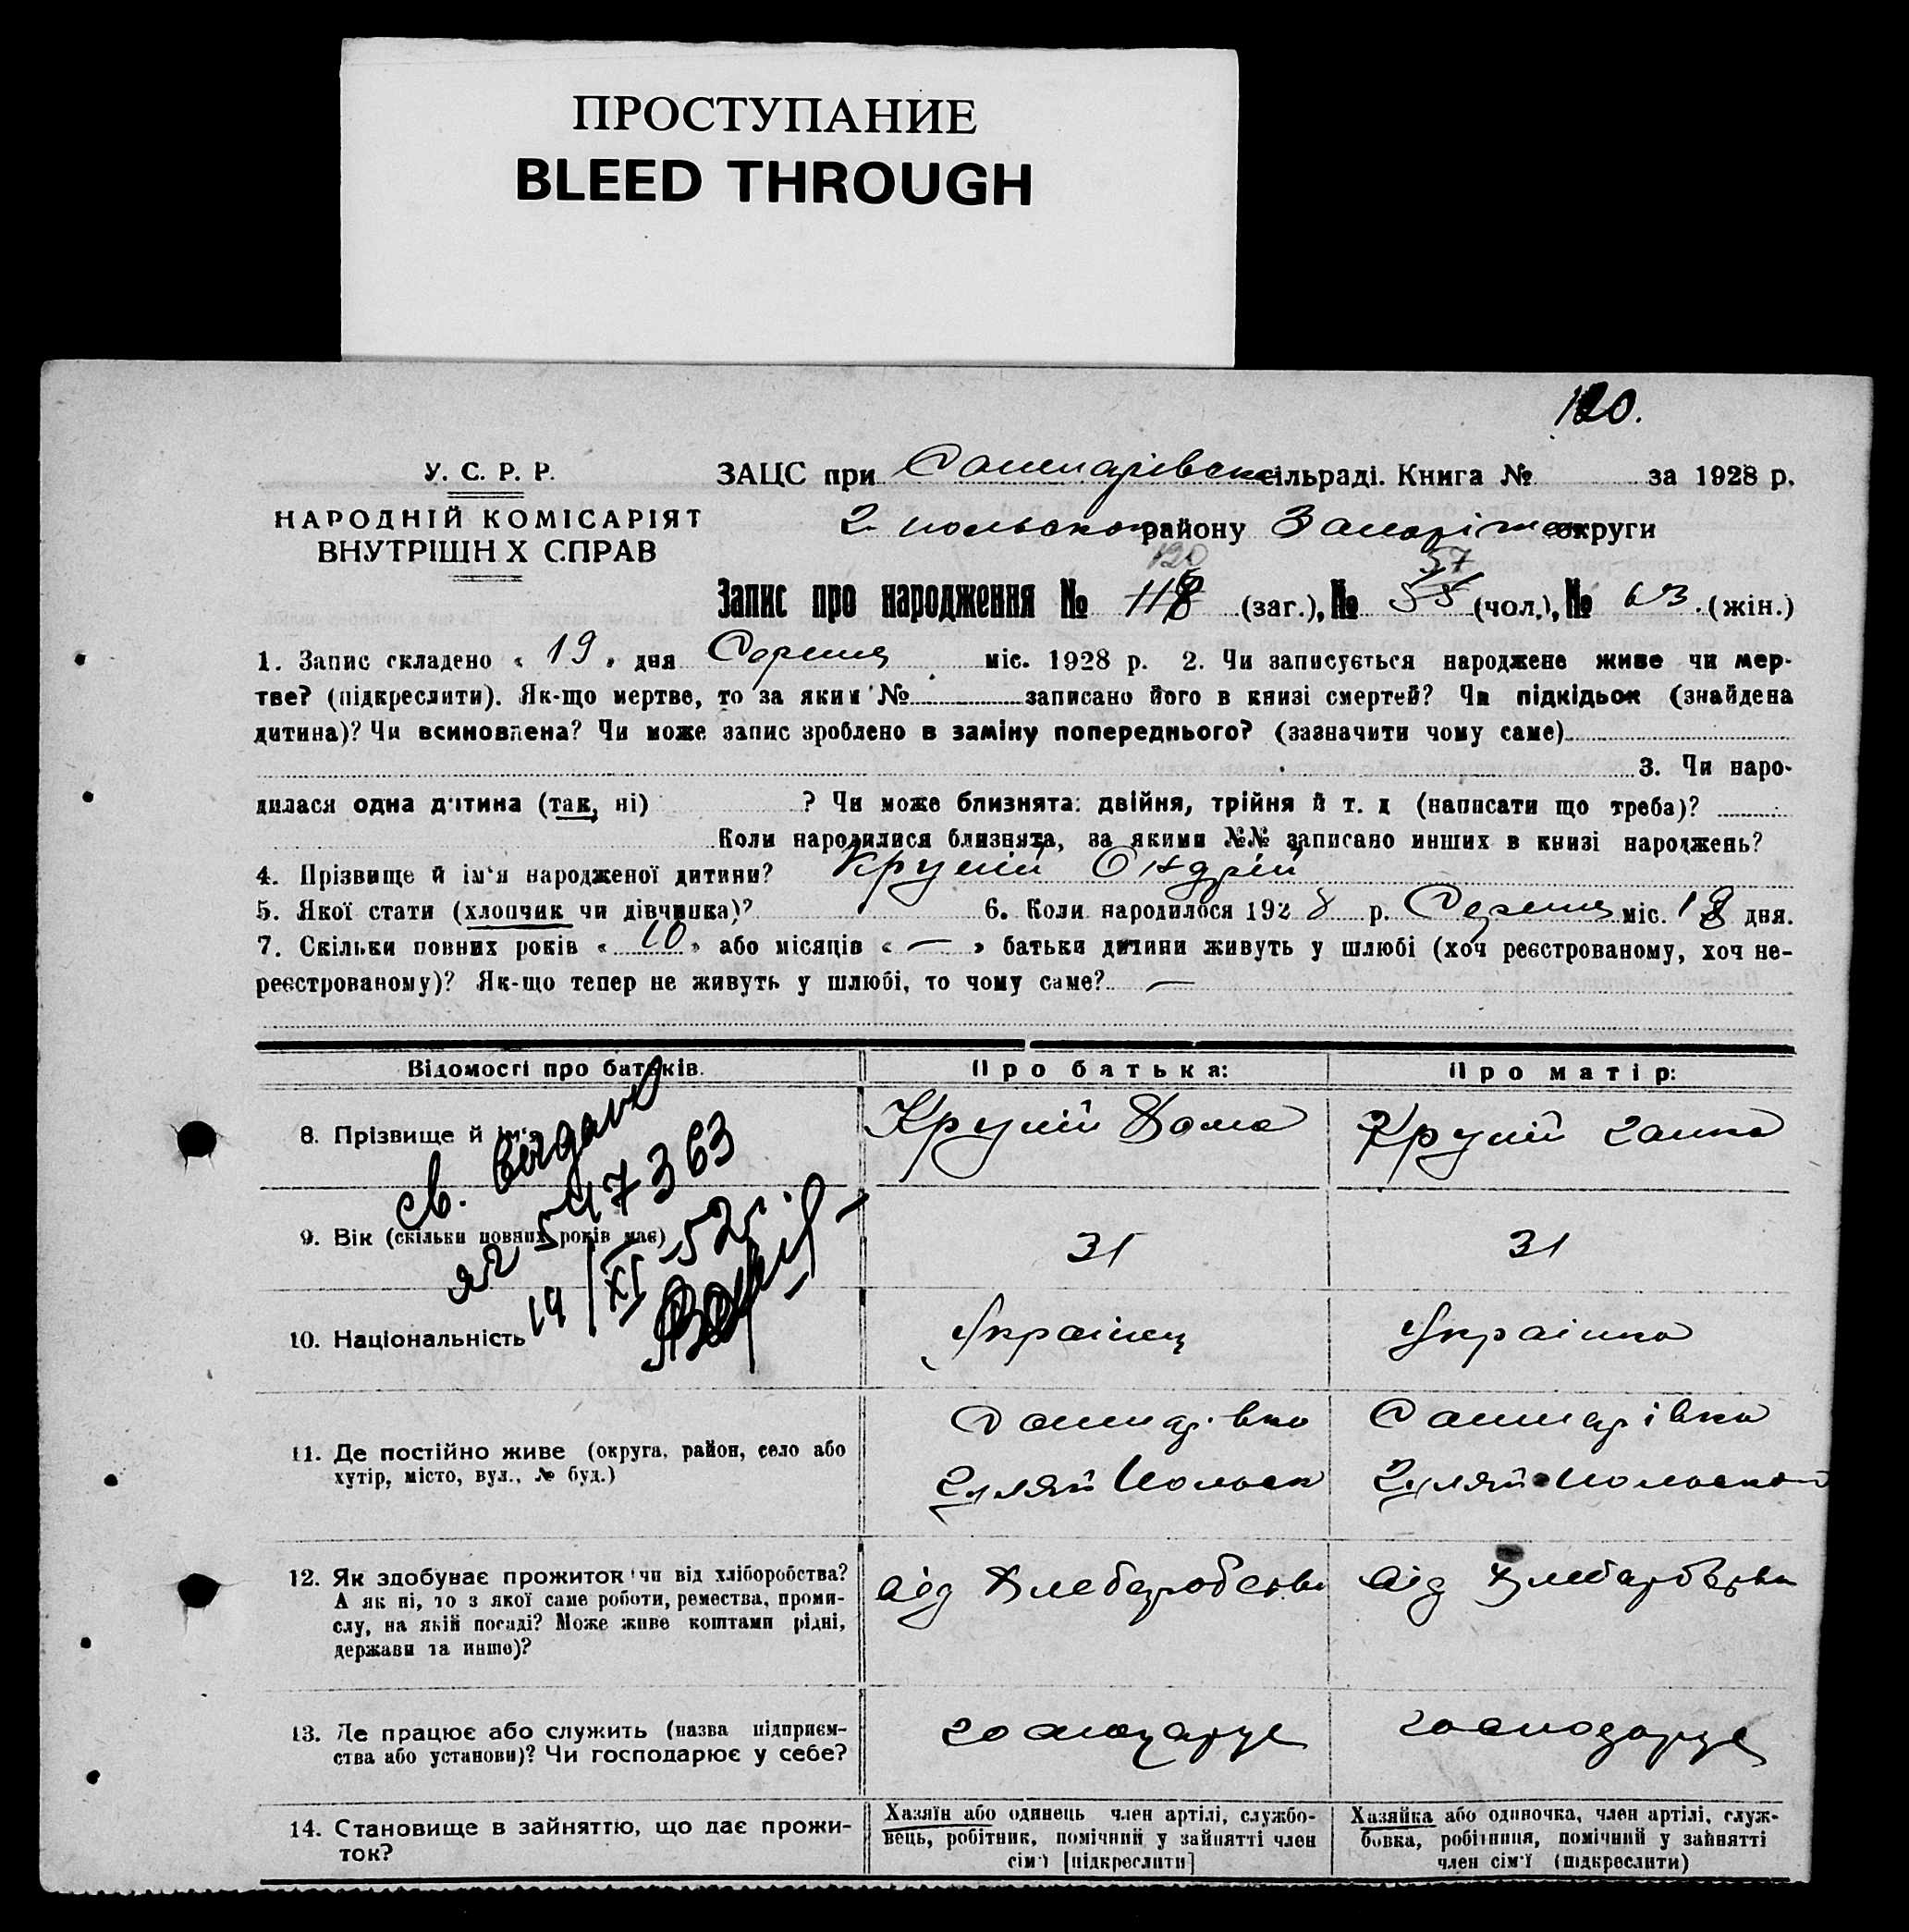 ПРОСТУПАНИЕ
BLEED THROUGH
120.
У. С. Р. Р.
НАРОДНІЙ КОМІСАРІЯТ
ВНУТРІШН Х СПРАВ
ЗАЦС при сільраді. Книга № за 1928 р.
2. польского району Запоріж округи
120 57
Запис про народження № 118 (заг.), № 55 (чол.), № 63 (жін.)
1. Запис складено « 19 » дня Серпня міс. 1928 р. 2. Чи записується народжене живе чи мер-
тве? (підкреслити). Як-що мертве, то за яким № записано його в книзі смертей? Чи підкідьок (знайдена
дитина)? Чи всиновлена? Чи може запис зроблено в заміну попереднього? (зазначити чому саме)
3. Чи наро-
дилася одна дитина (так, ні) ? Чи може близнята: двійня, трійня й т. д (написати що треба)?
Коли народилися близнята, за якими №№ записано инших в книзі народжень?
4. Прізвище й ім'я народженої дитини? Крупій Ондрій
5. Якої стати (хлопчик чи дівчинка)? 6. Коли народилося 1928 р. Серпня міс. 18 дня.
7. Скільки повних років « 10 » або місяців « — » батьки дитини живуть у шлюбі (хоч реєстрованому, хоч не-
реєстрованому)? Як-що тепер не живуть у шлюбі, то чому саме? —
Відомості про батьків. Про батька: Про матір:
8. Прізвище й ім'я Крупій Хома Крупій Ганна
св. видано
яг 547363
14/XI-52г
9. Вік (скільки повних років має) 31 31
10. Національність Українец Українка
11. Де постійно живе (округа, район, село або
хутір, місто, вул., № буд.)
Гуляй Польск Гуляй-Польской
12. Як здобуває прожиток чи від хліборобства?
А як ні, то з якої саме роботи, ремества, проми-
слу, на якій посаді? Може живе коштами рідні,
держави та инше)?
від Хлебаробства від Хлебарбства
13. Де працює або служить (назва підприєм-
ства або установи)? Чи господарює у себе?
господарує господарує
14. Становище в зайняттю, що дає прожи-
ток?
Хазяїн або одинець член артілі, службо-
вець, робітник, помічний у зайнятті член
сім'ї [підкреслити]
Хазяйка або одиночка, член артілі, служ-
бовка, робітниця, помічний у зайнятті
член сім'ї (підкреслити)